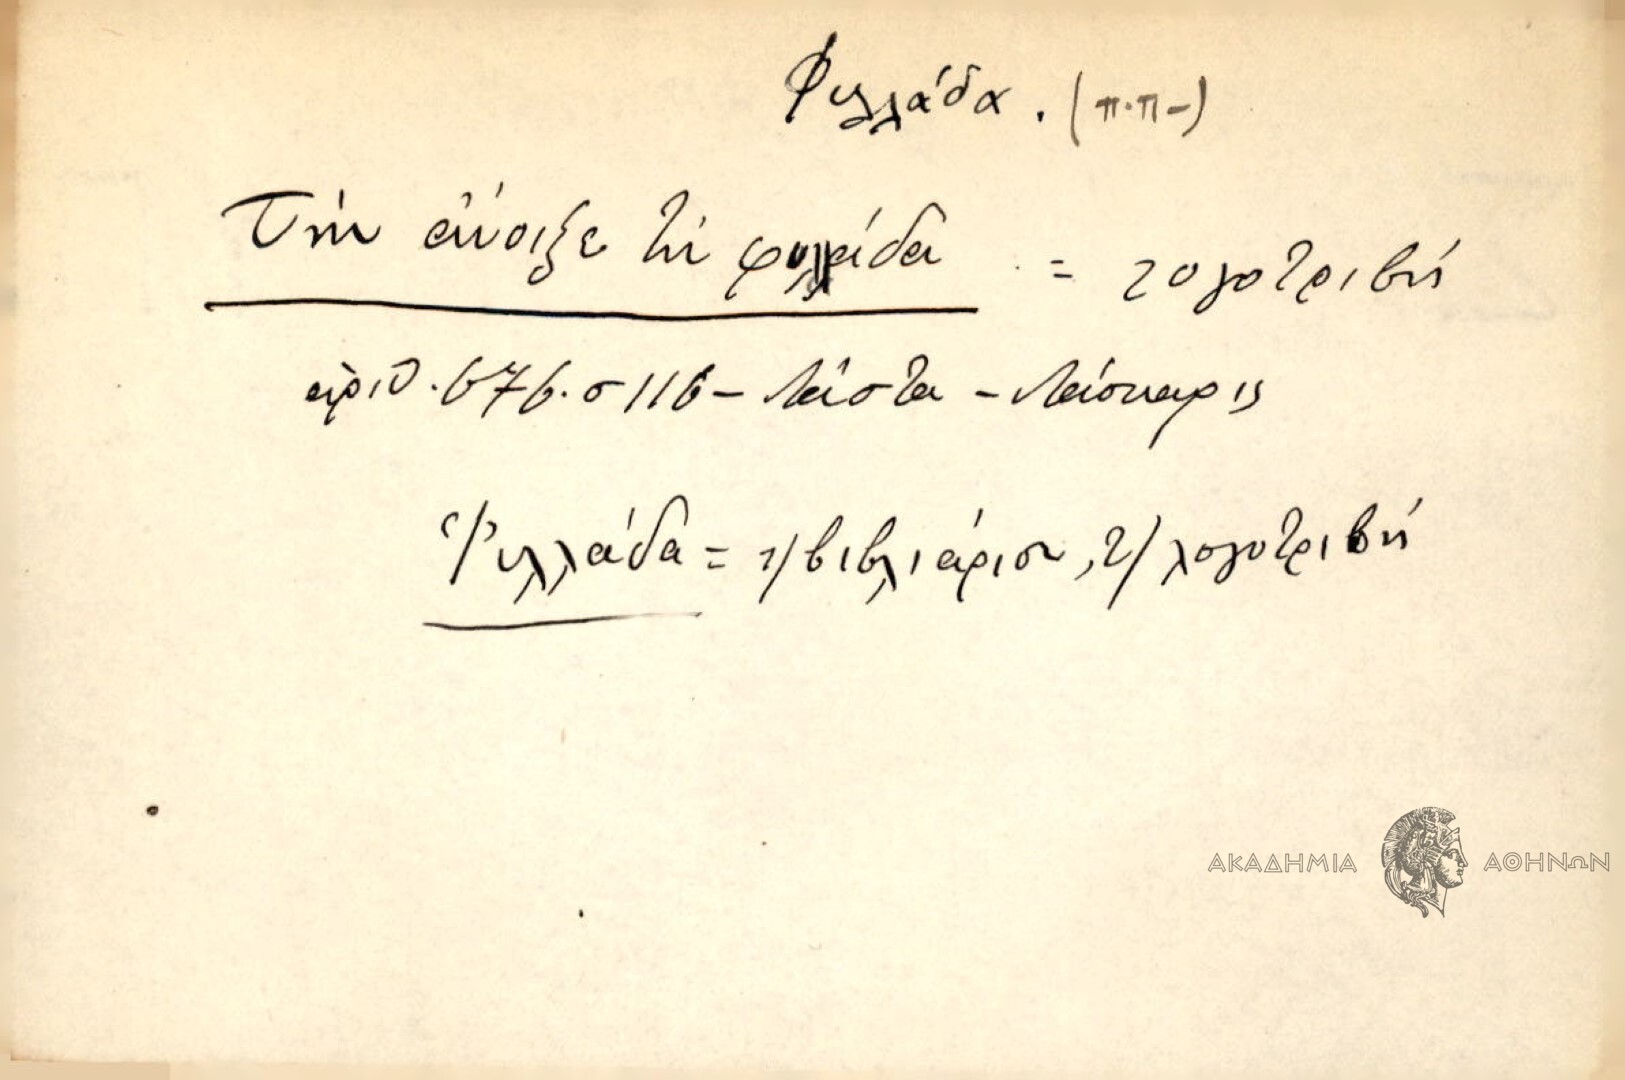 Φυλλάδα. (π.π-)
Τὴν ἄνοιξε τὴ φυλλάδα = λογοτριβή
ἀριθ. 676. σ 116 - Λάστα - Λάσκαρις
Φυλλάδα = 1/ βιβλιάριον, 2/ λογοτριβή
ΑΚΑΔΗΜΙΑ ΑΘΗΝΩΝ